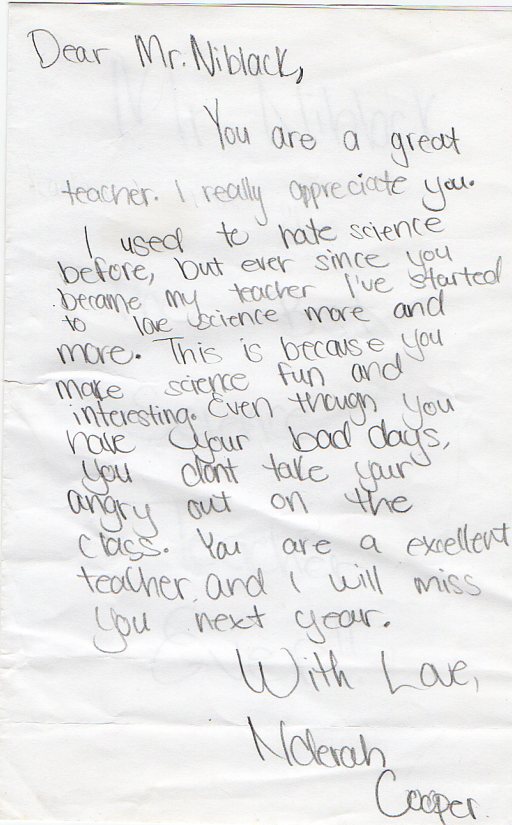 Dear Mr. Niblack,
You are a great
teacher. I really appreciate you.
I used to hate science
before, but ever since you
became my teacher I've started
to love science more and
more. This is because you
make science fun and
interesting. Even though you
have your bad days,
you dont take your
angry out on the
class. You are a excellent
teacher and I will miss
you next year.
With Love,
Nolerah
Cooper.